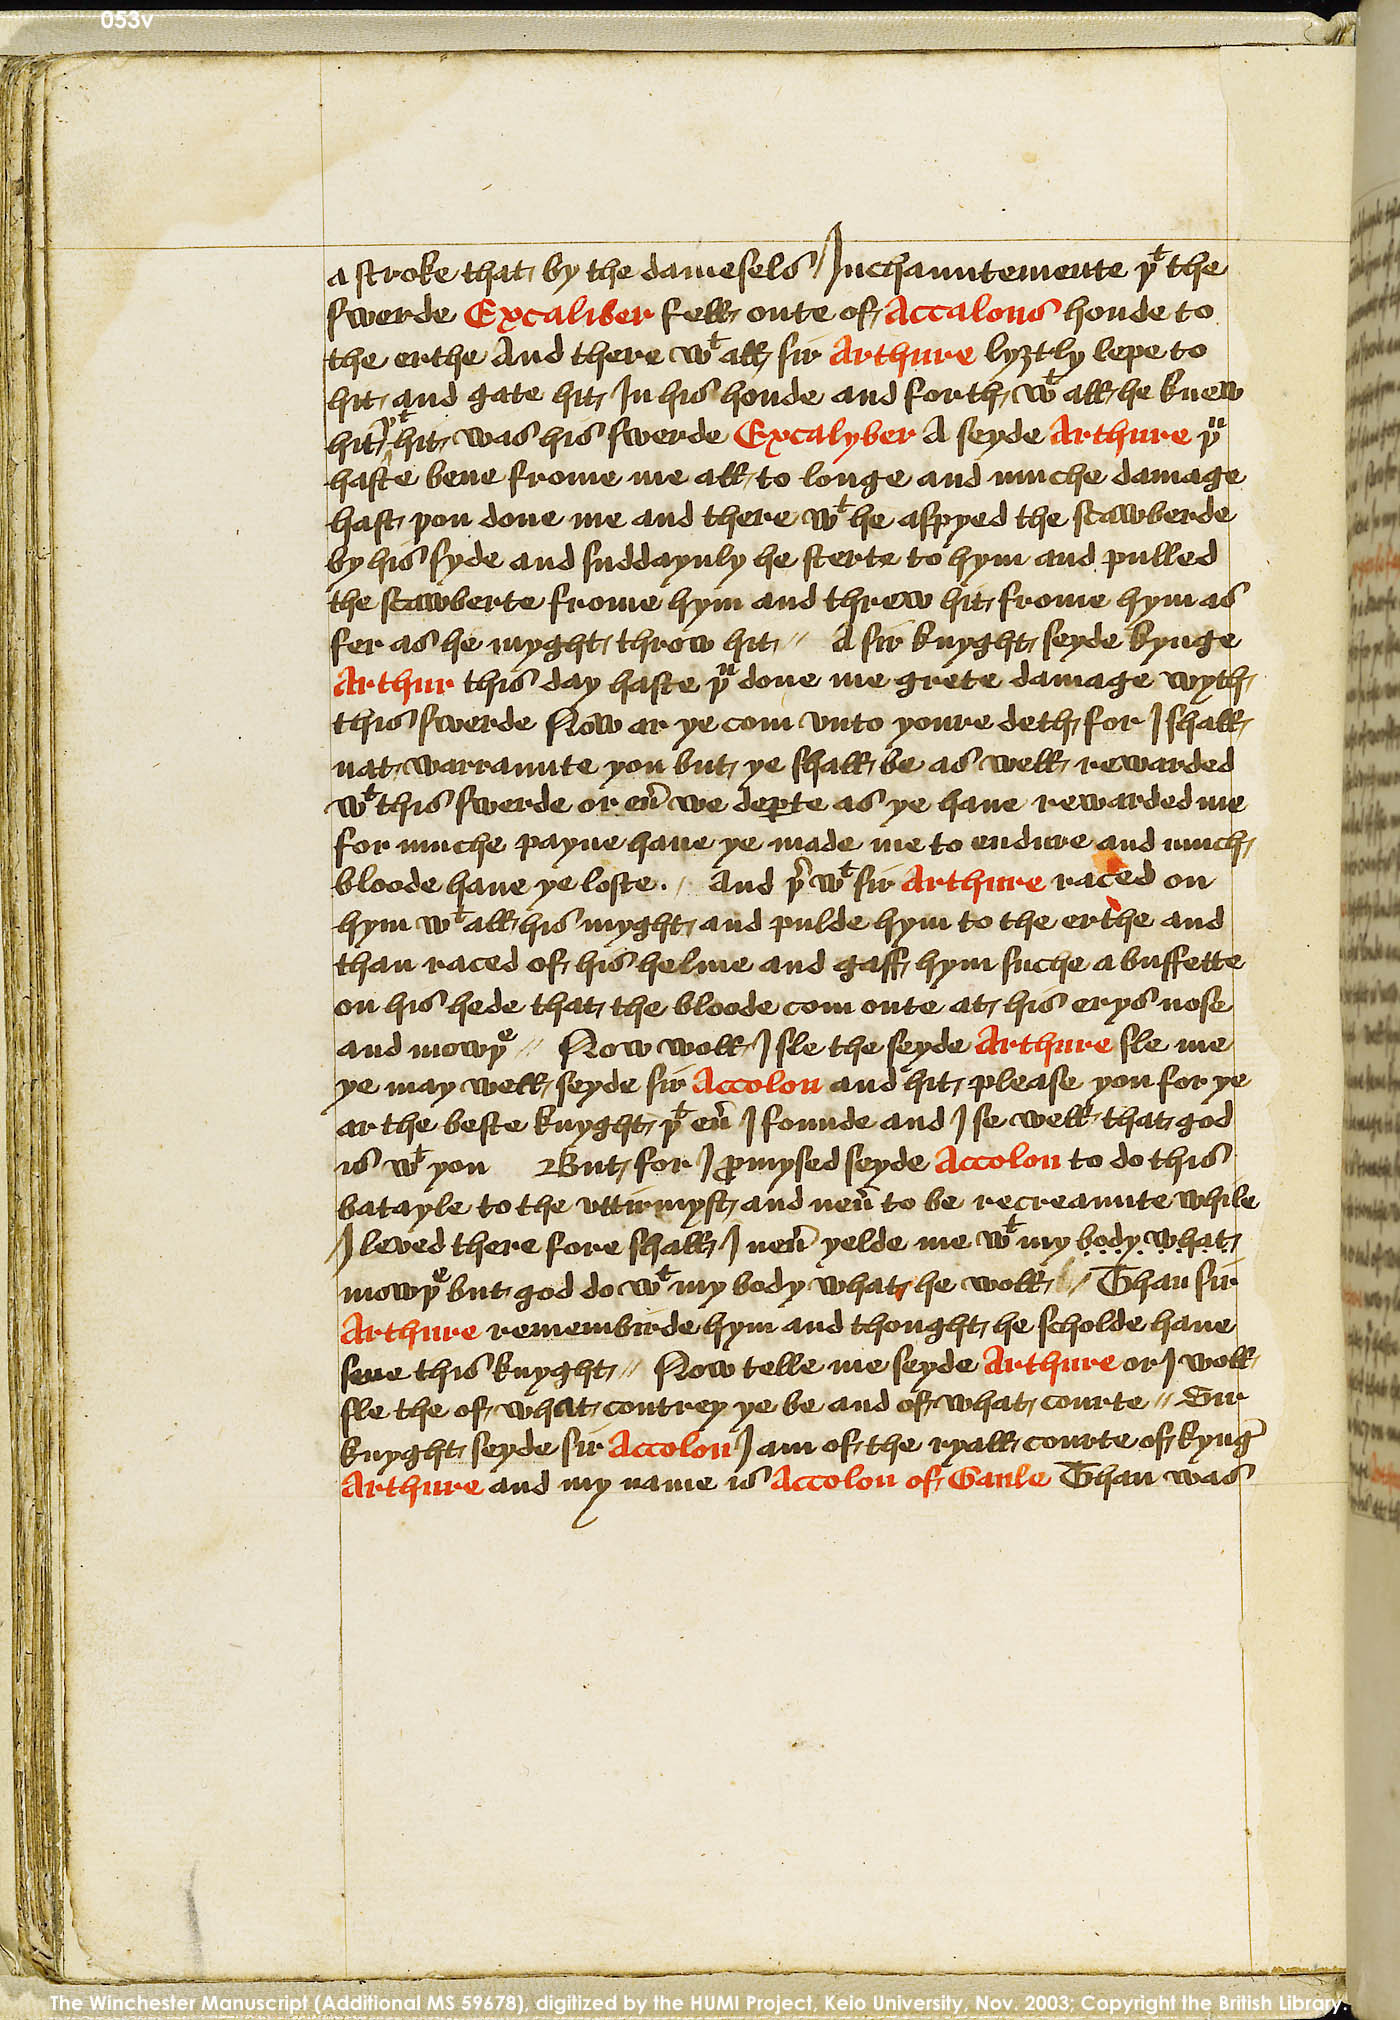 053v
a stroke that by the damesels Inchauntemente þᵗ the
swerde Excaliber fell oute of Accalons honde to
the erthe And there wᵗ all sir Arthure lyȝtly lepe to
hit and gate hit In his honde and forth wᵗ all he knew
hit þᵗ hit was his swerde Excalyber A seyde Arthure þᵘ
haste bene frome me all to longe and muche damage
hast þou done me and there wᵗ he aspyed the scawberde
by his syde and suddaynly he sterte to hym and pulled
the scawberte frome hym and threw hit frome hym as
fer as he myght throw hit // A sir knyght seyde kynge
Arthur this day haste þᵘ done me grete damage wyth
this swerde Now ar ye com vnto youre deth for I shall
nat warraunte you but ye shall be as well rewarded
wᵗ this swerde or eu̅ we deꝑte as ye haue rewarded me
for muche payne haue ye made me to endure and much
bloode haue ye loste . / And þ̅ wᵗ sir Arthure raced on
hym wᵗ all his myght and pulde hym to the erthe and
than raced of his helme and gaff hym suche a buffette
on his hede that the bloode com oute at his erys nose
and mowþᵉ // Now woll I sle the seyde Arthure sle me
ye may well seyde sir Accolon and hit please you for ye
ar the beste knyght þᵗ eu̅ I founde and I se well that god
is wᵗ you But for I ꝓmysed seyde Accolon to do this
batayle to the vttirmyst and neu̅ to be recreaunte while
I leved there fore shall I neu̅ yelde me wᵗ my body what
mowþᵉ but god do wᵗ my body what he woll // Than sir
Arthure remembirde hym and thought he scholde haue
sene this knyght // Now telle me seyde Arthure or I woll
sle the of what contrey ye be and of what courte // Sir
knyght seyde sir Accolon I am of the ryall courte of kyng̅
Arthure and my name is Accolon of Gaule Than was
The Winchester Manuscript (Additional MS 59678), digitized by the HUMI Project, Keio University, Nov. 2003; Copyright the British Library.